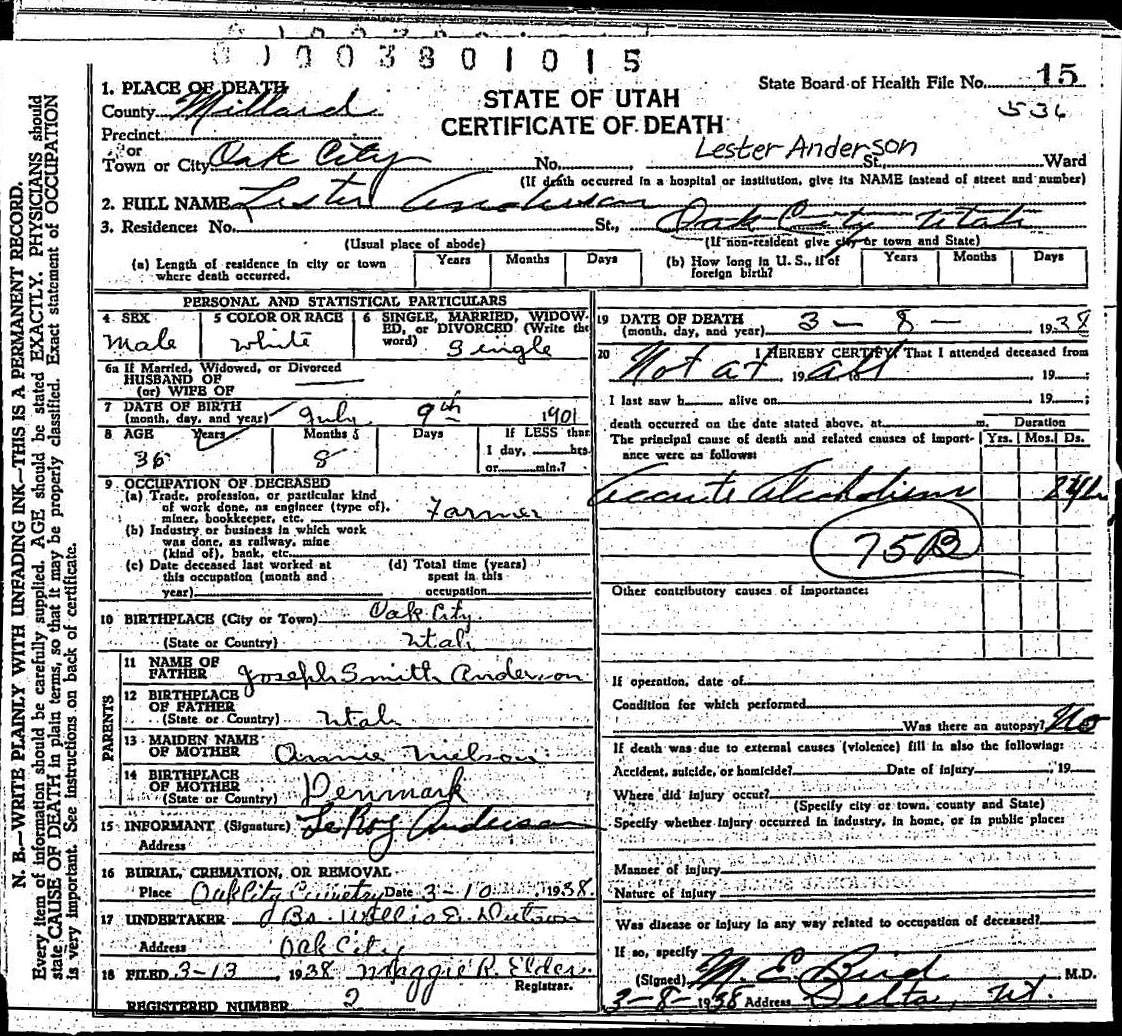 0 1 0 0 3 8 0 1 0 1 5
1. PLACE OF DEATH
County Millard
Precinct
or
Town or City Oak City
State Board of Health File No. 15
536
STATE OF UTAH
CERTIFICATE OF DEATH
Lester Anderson
No. St., Ward
(If death occurred in a hospital or institution, give its NAME instead of street and number)
2. FULL NAME Lester Anderson
3. Residence: No. St., Oak City Utah
(Usual place of abode) (If non-resident give city or town and State)
(a) Length of residence in city or town where death occurred. Years Months Days
(b) How long in U. S., if of foreign birth? Years Months Days
PERSONAL AND STATISTICAL PARTICULARS
4 SEX male
5 COLOR OR RACE white
6 SINGLE, MARRIED, WIDOWED, or DIVORCED (Write the word) Single
6a If Married, Widowed, or Divorced
HUSBAND OF
(or) WIFE OF
7 DATE OF BIRTH (month, day, and year) July 9th 1901
8 AGE Years 36 Months 8 Days If LESS than 1 day, hrs. or min.?
9 OCCUPATION OF DECEASED
(a) Trade, profession, or particular kind of work done, as engineer (type of), miner, bookkeeper, etc. Farmer
(b) Industry or business in which work was done, as railway, mine (kind of), bank, etc.
(c) Date deceased last worked at this occupation (month and year)
(d) Total time (years) spent in this occupation
10 BIRTHPLACE (City or Town) Oak City
(State or Country) Utah
PARENTS
11 NAME OF FATHER Joseph Smith Anderson
12 BIRTHPLACE OF FATHER (State or Country) Utah
13 MAIDEN NAME OF MOTHER Annie Nielson
14 BIRTHPLACE OF MOTHER (State or Country) Denmark
15 INFORMANT (Signature) LeRoy Anderson
Address
16 BURIAL, CREMATION, OR REMOVAL
Place Oak City Cemetry Date 3-10 1938.
17 UNDERTAKER Willis E.
Address Oak City
18 FILED 3-13 1938 Maggie R. Elder
Registrar.
REGISTERED NUMBER 2
19 DATE OF DEATH (month, day, and year) 3 - 8 - 1938
20 I HEREBY CERTIFY, That I attended deceased from
Not at 19 all 19 ;
I last saw h alive on 19 ;
death occurred on the date stated above, at m.
Duration
The principal cause of death and related causes of importance were as follows: Yrs. Mos. Ds.
Accute Alcoholism
75B
Other contributory causes of importance:
If operation, date of
Condition for which performed
Was there an autopsy? No
If death was due to external causes (violence) fill in also the following:
Accident, suicide, or homicide? Date of injury , 19
Where did injury occur?
(Specify city or town, county and State)
Specify whether injury occurred in industry, in home, or in public place:
Manner of injury
Nature of injury
Was disease or injury in any way related to occupation of deceased?
If so, specify
(Signed) M. E. Bird M.D.
3-8-1938 Address Delta, Ut.
N. B.—WRITE PLAINLY WITH UNFADING INK—THIS IS A PERMANENT RECORD.
Every item of information should be carefully supplied. AGE should be stated EXACTLY. PHYSICIANS should
state CAUSE OF DEATH in plain terms, so that it may be properly classified. Exact statement of OCCUPATION
is very important. See instructions on back of certificate.